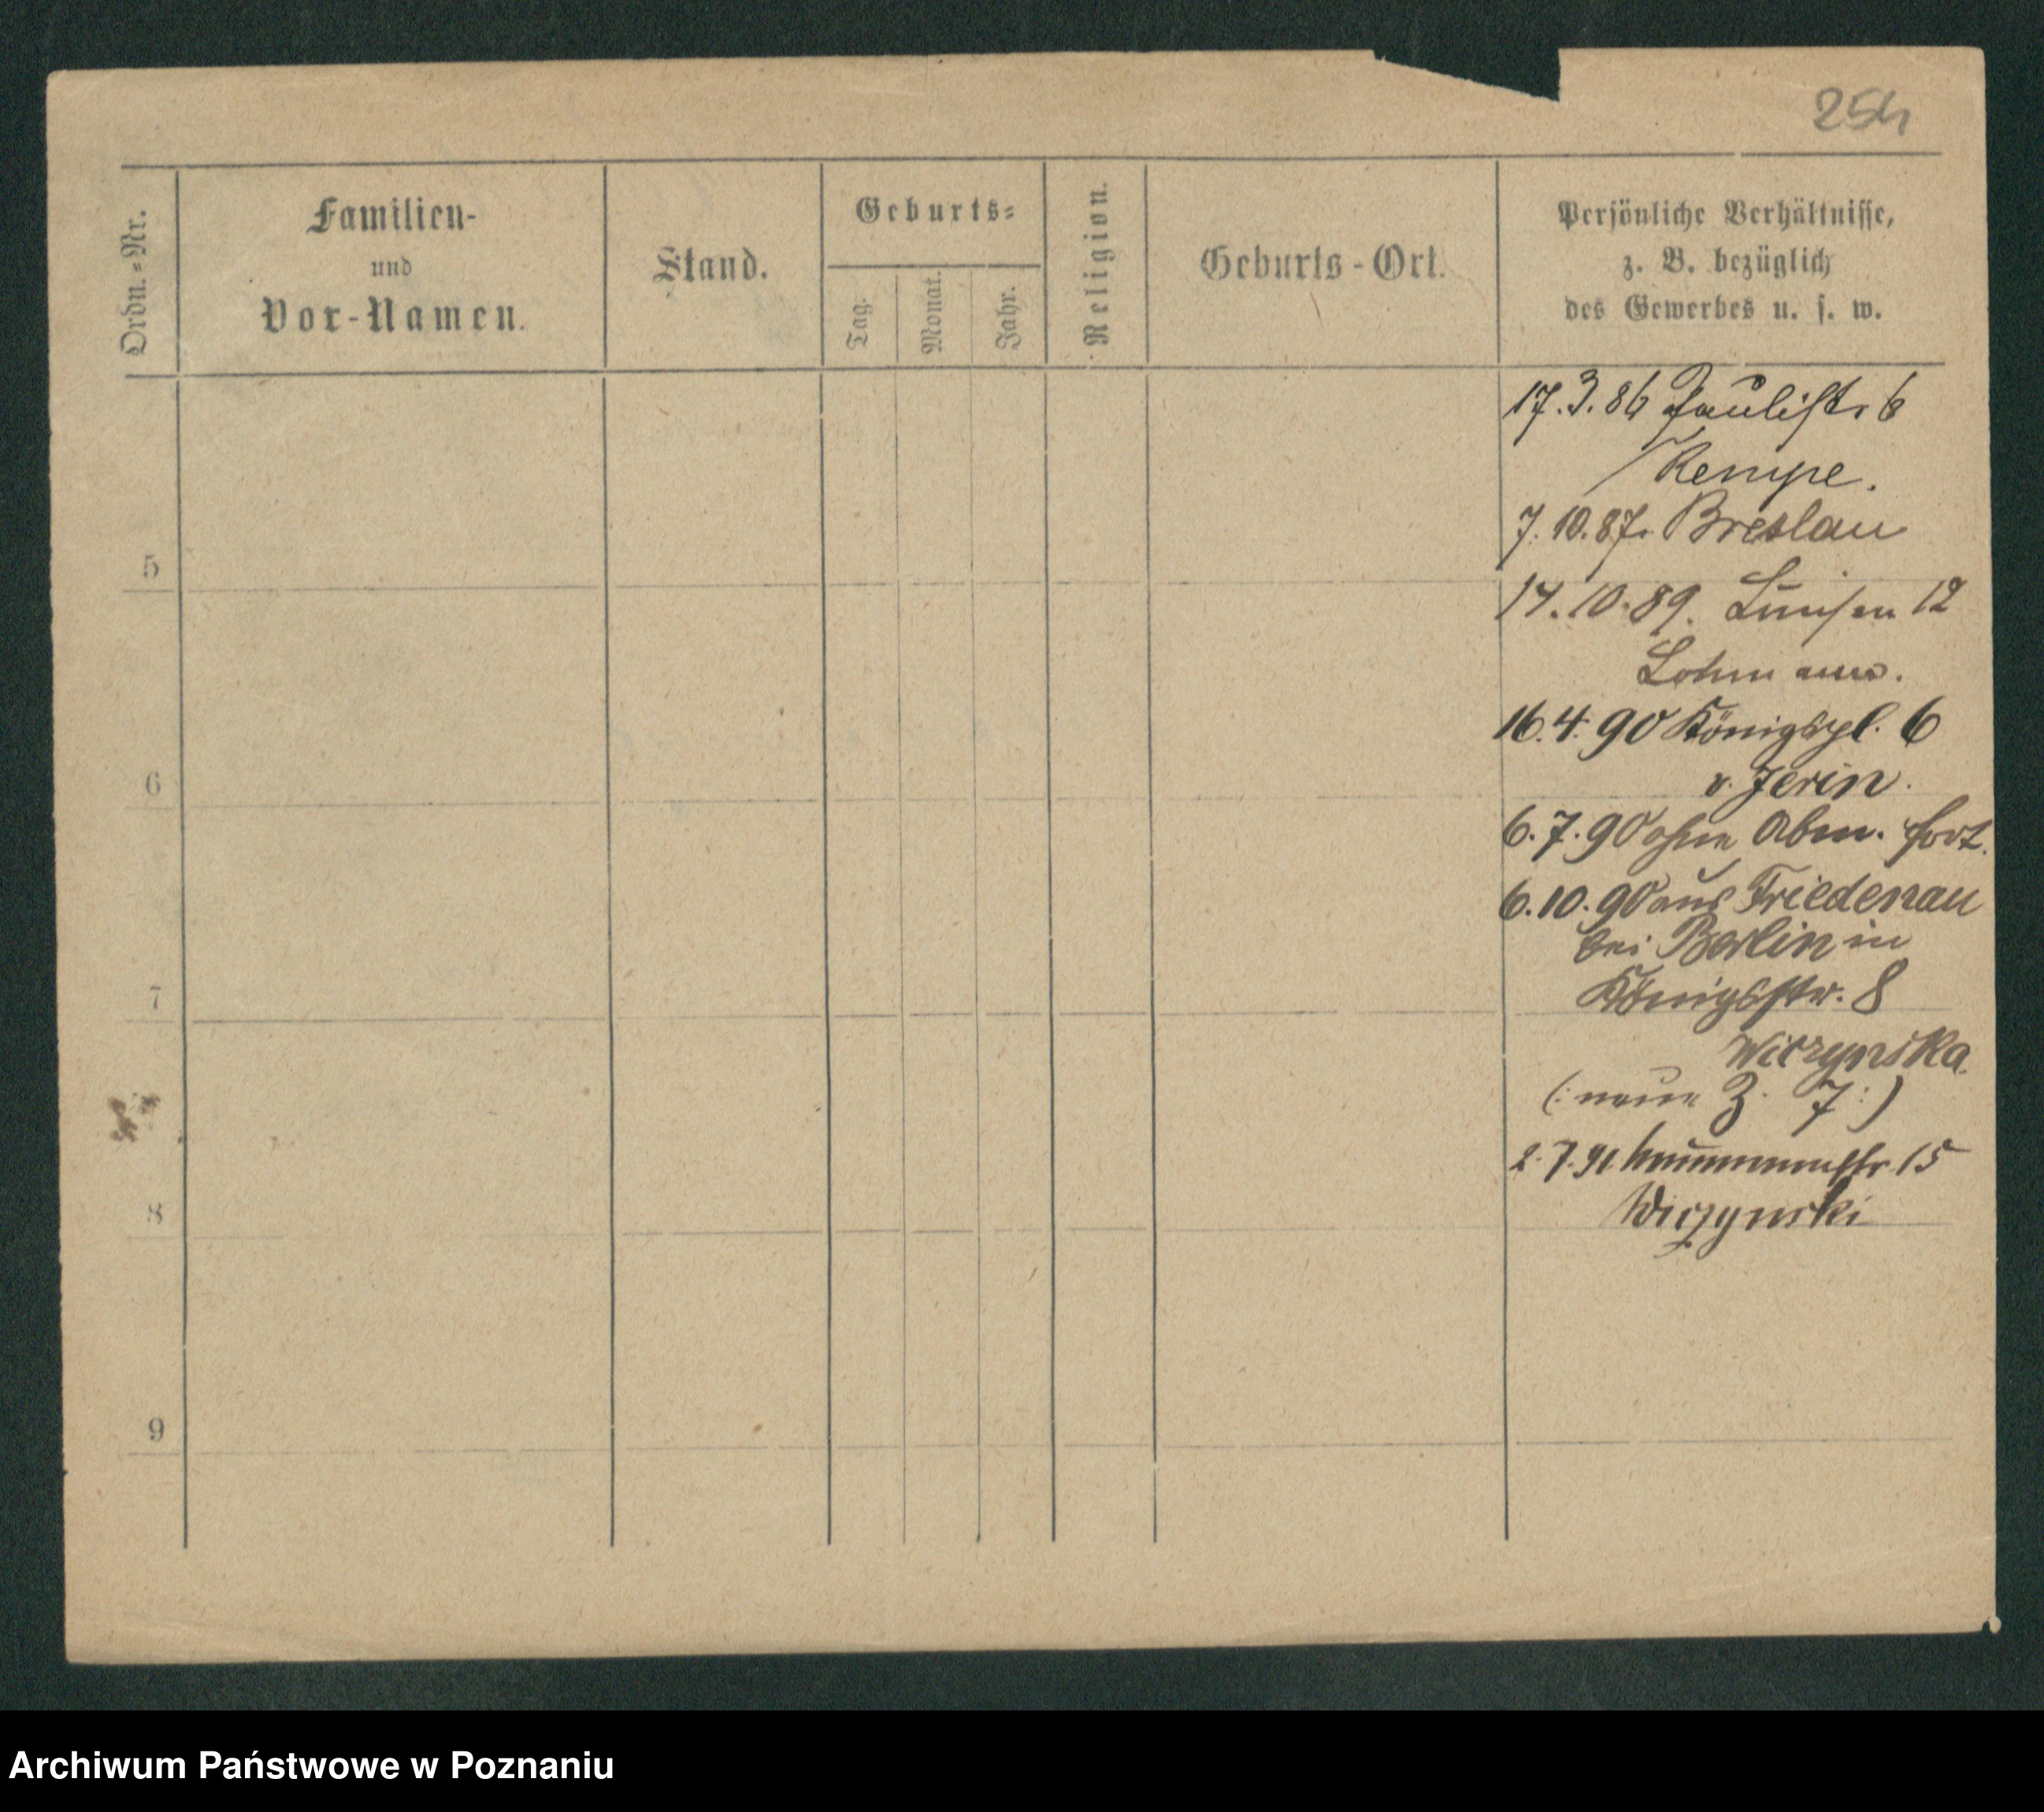 254
Ordn.-Nr.
Familien-
und
Vor-Namen.
Stand.
Geburts-
Tag.
Monat.
Jahr.
Religion.
Geburts-Ort.
Persönliche Verhältnisse,
z. B. bezüglich
des Gewerbes u. s. w.
17.3.86 Paulistr 6
Kempe.
7.10.87. Breslau
5
14.10.89. Luisen 12
Lohmann.
16.4.90 Königspl. 6
v. Jerin.
6
6.7.90 ohne Abm. fort.
6.10.90 aus Friedenau
bei Berlin in
Königsstr. 8
7
Wiczynska
(: neue Z. 7 :)
2.7.91 15
Wiczynski
8
9
Archiwum Państwowe w Poznaniu